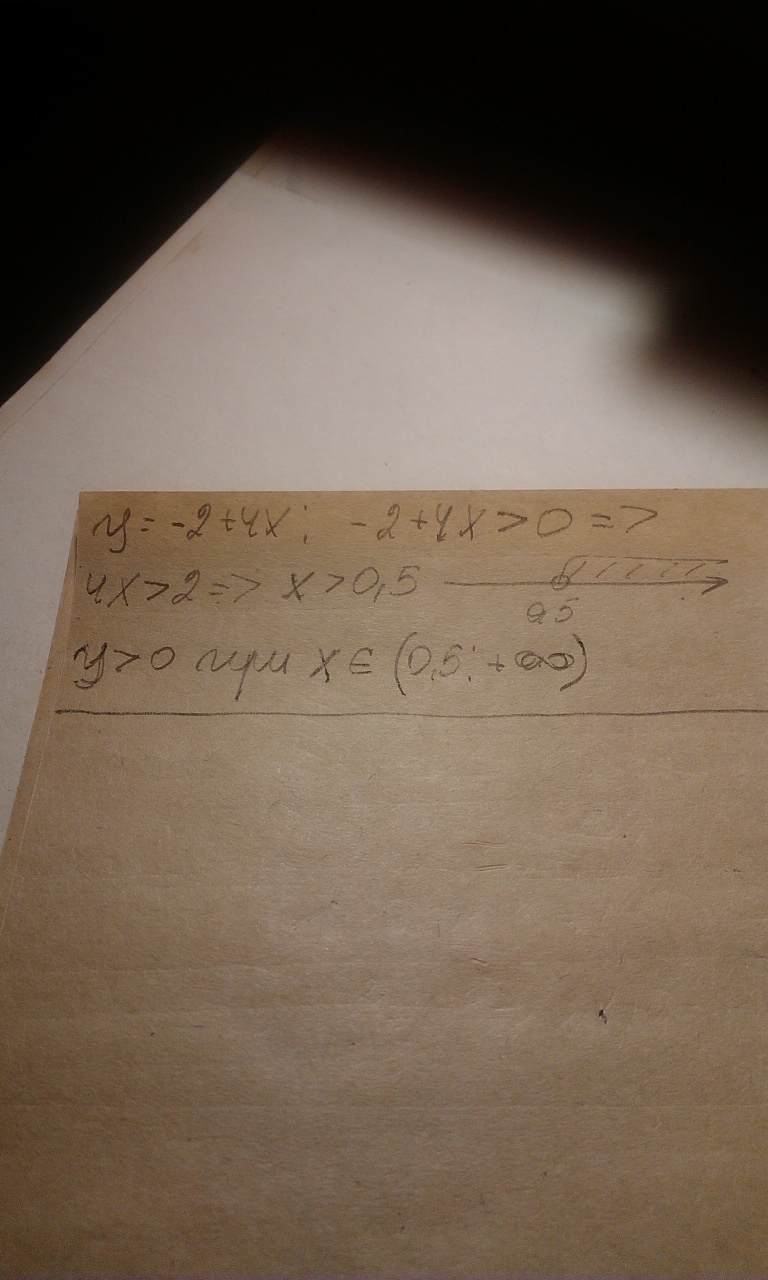 y = -2+4x; -2+4x>0 =>
4x>2 => x>0,5
0,5
y>0 при x ∈ (0,5; +∞)